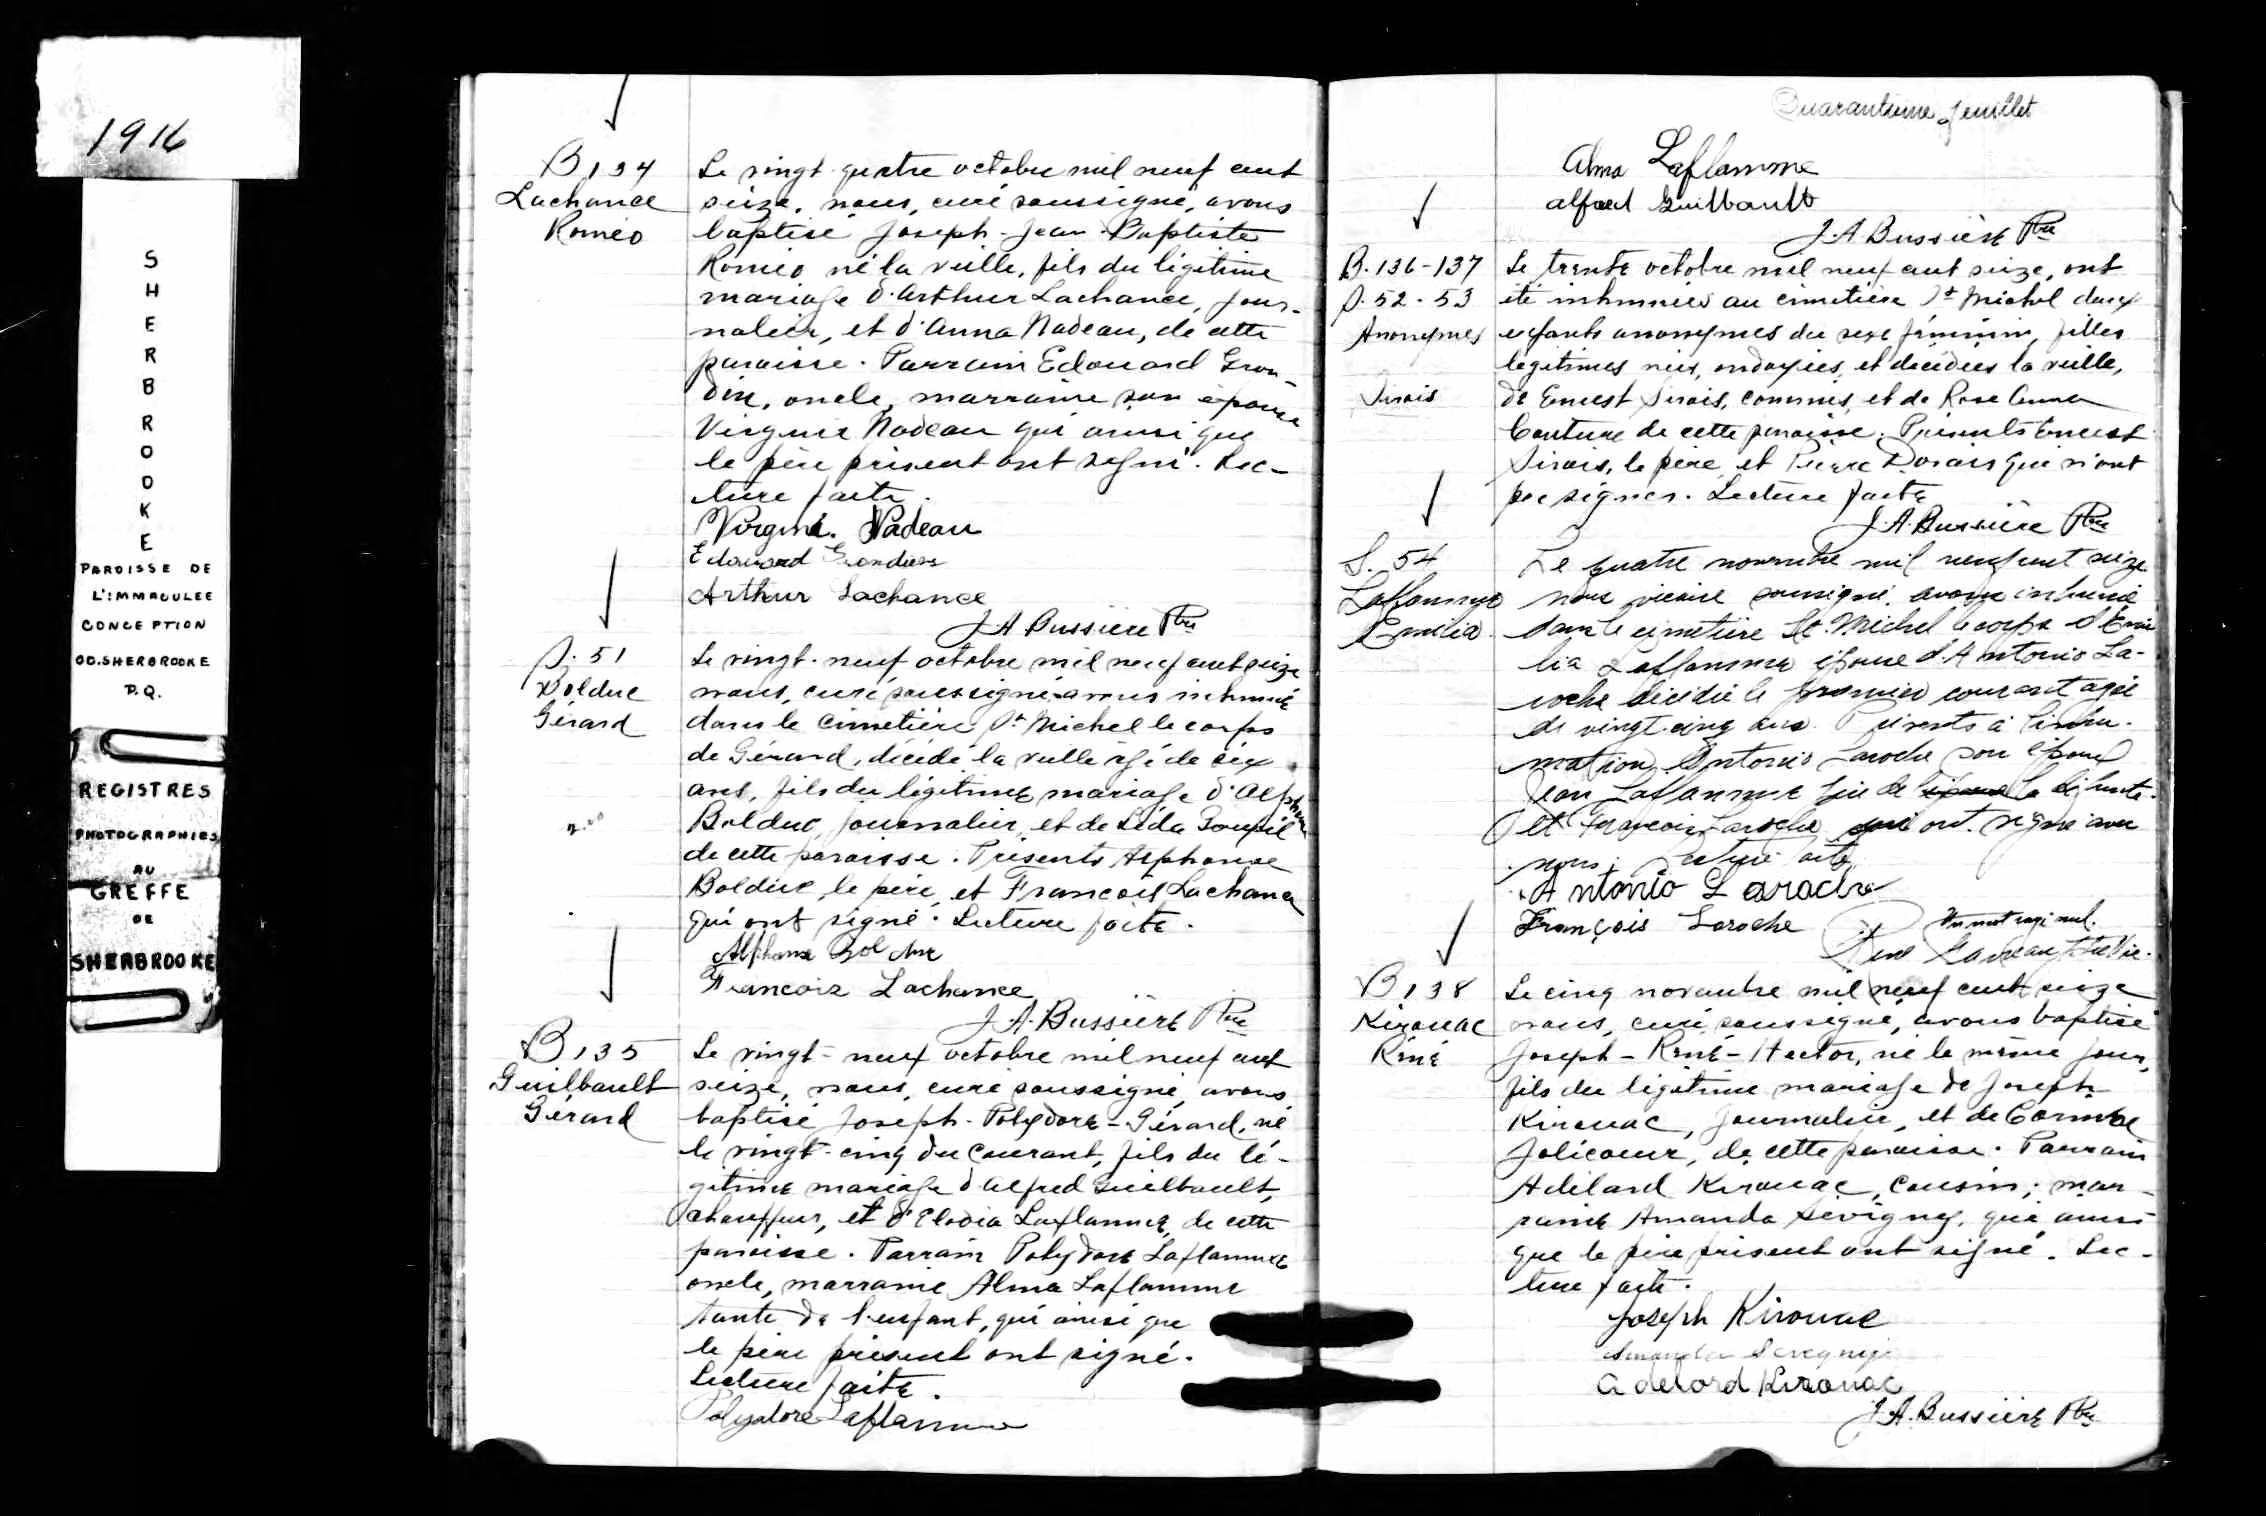 1916
SHERBROOKE
PAROISSE DE
L'IMMACULEE
CONCEPTION
CO.SHERBROOKE
P.Q.
REGISTRES
PHOTOGRAPHIES
AU
GREFFE
DE
SHERBROOKE
B 134
Lachance
Roméo
Le vingt-quatre octobre mil neuf cent
seize, nous, curé soussigné, avons
baptisé Joseph-Jean-Baptiste
Roméo né la veille, fils du légitime
mariage d'Arthur Lachance, jour-
nalier, et d'Anna Nadeau, de cette
paroisse. Parrain Edouard Gron-
din, oncle, marraine son épouse
Virginie Nadeau qui ainsi que
le père présent ont signé. Lec-
ture faite.
Virginie Nadeau
Edouard Grondin
Arthur Lachance
J A Bussière Ptre
S. 51
Bolduc
Gérard
Le vingt-neuf octobre mil neuf cent seize
nous, curé soussigné avons inhumé
dans le cimetière St Michel le corps
de Gérard, décédé la veille âgé de six
ans, fils du légitime mariage d'Alphonse
Bolduc, journalier, et de Léda Goupil
de cette paroisse. Présents Alphonse
Bolduc, le père, et François Lachance
qui ont signé. Lecture faite.
Alphonse Bolduc
Francois Lachance
J.A. Bussière Ptre
B 135
Guilbault
Gérard
Le vingt-neuf octobre mil neuf cent
seize, nous, curé soussigné, avons
baptisé Joseph-Polydore-Gérard, né
le vingt-cinq du courant, fils du lé-
gitime mariage d'Alfred Guilbault,
chauffeur, et d'Elodia Laflamme, de cette
paroisse. Parrain Polydore Laflamme
oncle, marraine Alma Laflamme
tante de l'enfant, qui ainsi que
le père présent ont signé.
Lecture faite.
Polydore Laflamme
Quarantième feuillet
Alma Laflamme
alfred Guilbault
J.A Bussière Ptre
B. 136-137
S. 52-53
Anonymes
Sirois
Le trente octobre mil neuf cent seize, ont
été inhumées au cimetière St Michel deux
enfants anonymes du sexe féminin, filles
légitimes nées, ondoyées, et décédées la veille,
de Ernest Sirois, commis, et de Rose Anna
Couture de cette paroisse. Présents Ernest
Sirois, le père, et Pierre Dorais qui n'ont
pu signer. Lecture faite
J.A. Bussière Ptre
S. 54
Laflamme
Emilia
Le quatre novembre mil neuf cent seize
nous vicaire soussigné, avons inhumé
dans le cimetière St. Michel le corps d'Emi
lia Laflamme épouse d'Antonio La-
roche décédée le premier courant agée
de vingt cinq ans. Présents à l'inhu-
mation Antonio Laroche son époux
Jean Laflamme de la défunte
et François Laroche qui ont signé avec
nous. Lecture faite
Antonio Laroche
François Laroche
Un mot rayé nul.
B 138
Kirouac
Réné
Le cinq novembre mil neuf cent seize
nous, curé soussigné, avons baptisé
Joseph-Réné-Hector, né le même jour,
fils du légitime mariage de Joseph
Kirouac, journalier, et de Corinne
Jolicoeur, de cette paroisse. Parrain
Adélard Kirouac, cousin; mar-
raine Amanda Sévigny, qui ainsi
que le père présent ont signé. Lec-
ture faite.
Joseph Kirouac
Amanda Sevigny
Adelord Kirouac
J.A. Bussière Ptre